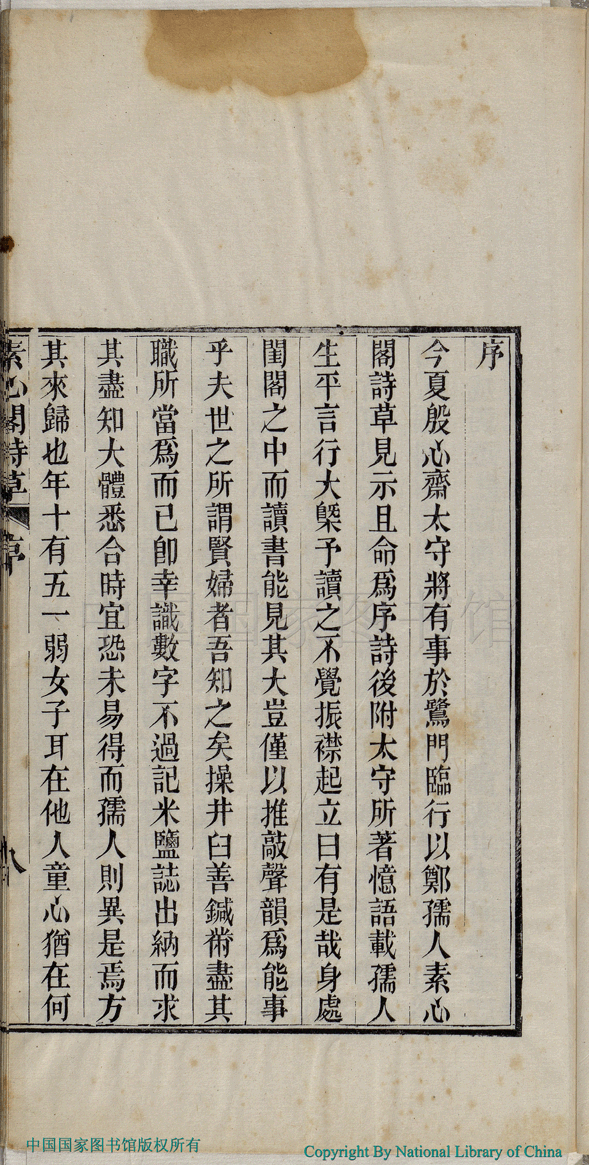 序
今夏殷心齋太守將有事於鷺門臨行以鄭孺人素心
閣詩草見示且命爲序詩後附太守所著憶語載孺人
生平言行大槩予讀之不覺振襟起立曰有是哉身處
閨閣之中而讀書能見其大豈僅以推敲聲韻爲能事
乎夫世之所謂賢婦者吾知之矣操井臼善鍼黹盡其
職所當爲而已卽幸識數字不過記米鹽誌出納而求
其盡知大體悉合時宜恐未易得而孺人則異是焉方
其來歸也年十有五一弱女子耳在他人童心猶在何
素心閣詩草 序 八
中国国家图书馆
中国国家图书馆版权所有
Copyright By National Library of China